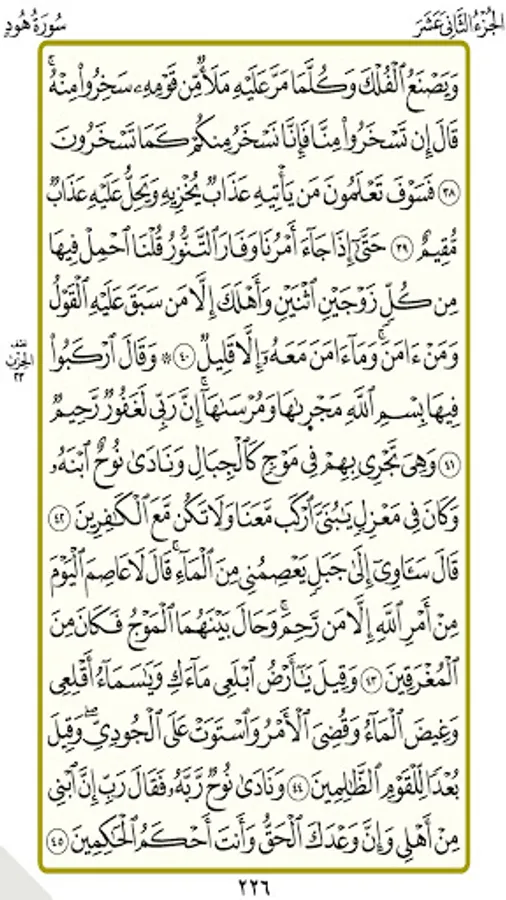 الجُزْءُ الثَّانِي عَشَرَ
سُورَةُ هُودٍ
وَيَصْنَعُ ٱلْفُلْكَ وَكُلَّمَا مَرَّ عَلَيْهِ مَلَأٌ مِّن قَوْمِهِۦ سَخِرُوا۟ مِنْهُ ۚ
قَالَ إِن تَسْخَرُوا۟ مِنَّا فَإِنَّا نَسْخَرُ مِنكُمْ كَمَا تَسْخَرُونَ
٣٨ فَسَوْفَ تَعْلَمُونَ مَن يَأْتِيهِ عَذَابٌ يُخْزِيهِ وَيَحِلُّ عَلَيْهِ عَذَابٌ
مُّقِيمٌ ٣٩ حَتَّىٰٓ إِذَا جَآءَ أَمْرُنَا وَفَارَ ٱلتَّنُّورُ قُلْنَا ٱحْمِلْ فِيهَا
مِن كُلٍّ زَوْجَيْنِ ٱثْنَيْنِ وَأَهْلَكَ إِلَّا مَن سَبَقَ عَلَيْهِ ٱلْقَوْلُ
وَمَنْ ءَامَنَ ۚ وَمَآ ءَامَنَ مَعَهُۥٓ إِلَّا قَلِيلٌ ٤٠ ۞ وَقَالَ ٱرْكَبُوا۟
نصف
الحزب
٢٣
فِيهَا بِسْمِ ٱللَّهِ مَجْر۪ىٰهَا وَمُرْسَىٰهَآ ۚ إِنَّ رَبِّى لَغَفُورٌ رَّحِيمٌ
٤١ وَهِىَ تَجْرِى بِهِمْ فِى مَوْجٍ كَٱلْجِبَالِ وَنَادَىٰ نُوحٌ ٱبْنَهُۥ
وَكَانَ فِى مَعْزِلٍ يَٰبُنَىَّ ٱرْكَب مَّعَنَا وَلَا تَكُن مَّعَ ٱلْكَٰفِرِينَ ٤٢
قَالَ سَـَٔاوِىٓ إِلَىٰ جَبَلٍ يَعْصِمُنِى مِنَ ٱلْمَآءِ ۚ قَالَ لَا عَاصِمَ ٱلْيَوْمَ
مِنْ أَمْرِ ٱللَّهِ إِلَّا مَن رَّحِمَ ۚ وَحَالَ بَيْنَهُمَا ٱلْمَوْجُ فَكَانَ مِنَ
ٱلْمُغْرَقِينَ ٤٣ وَقِيلَ يَٰٓأَرْضُ ٱبْلَعِى مَآءَكِ وَيَٰسَمَآءُ أَقْلِعِى
وَغِيضَ ٱلْمَآءُ وَقُضِىَ ٱلْأَمْرُ وَٱسْتَوَتْ عَلَى ٱلْجُودِىِّ ۖ وَقِيلَ
بُعْدًا لِّلْقَوْمِ ٱلظَّٰلِمِينَ ٤٤ وَنَادَىٰ نُوحٌ رَّبَّهُۥ فَقَالَ رَبِّ إِنَّ ٱبْنِى
مِنْ أَهْلِى وَإِنَّ وَعْدَكَ ٱلْحَقُّ وَأَنتَ أَحْكَمُ ٱلْحَٰكِمِينَ ٤٥
٢٢٦